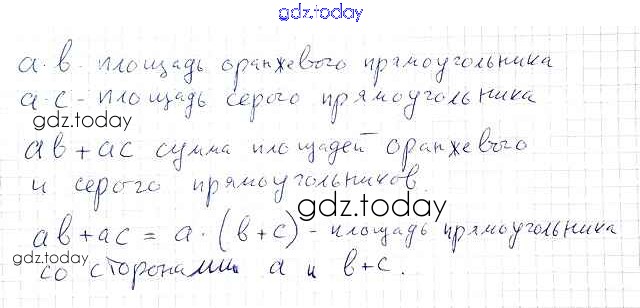 gdz.today
a · b - площадь оранжевого прямоугольника
a · c - площадь серого прямоугольника
gdz.today
ab + ac сумма площадей оранжевого
и серого прямоугольников.
gdz.today
ab + ac = a · (b + c) - площадь прямоугольника
gdz.today
со сторонами a и b + c.